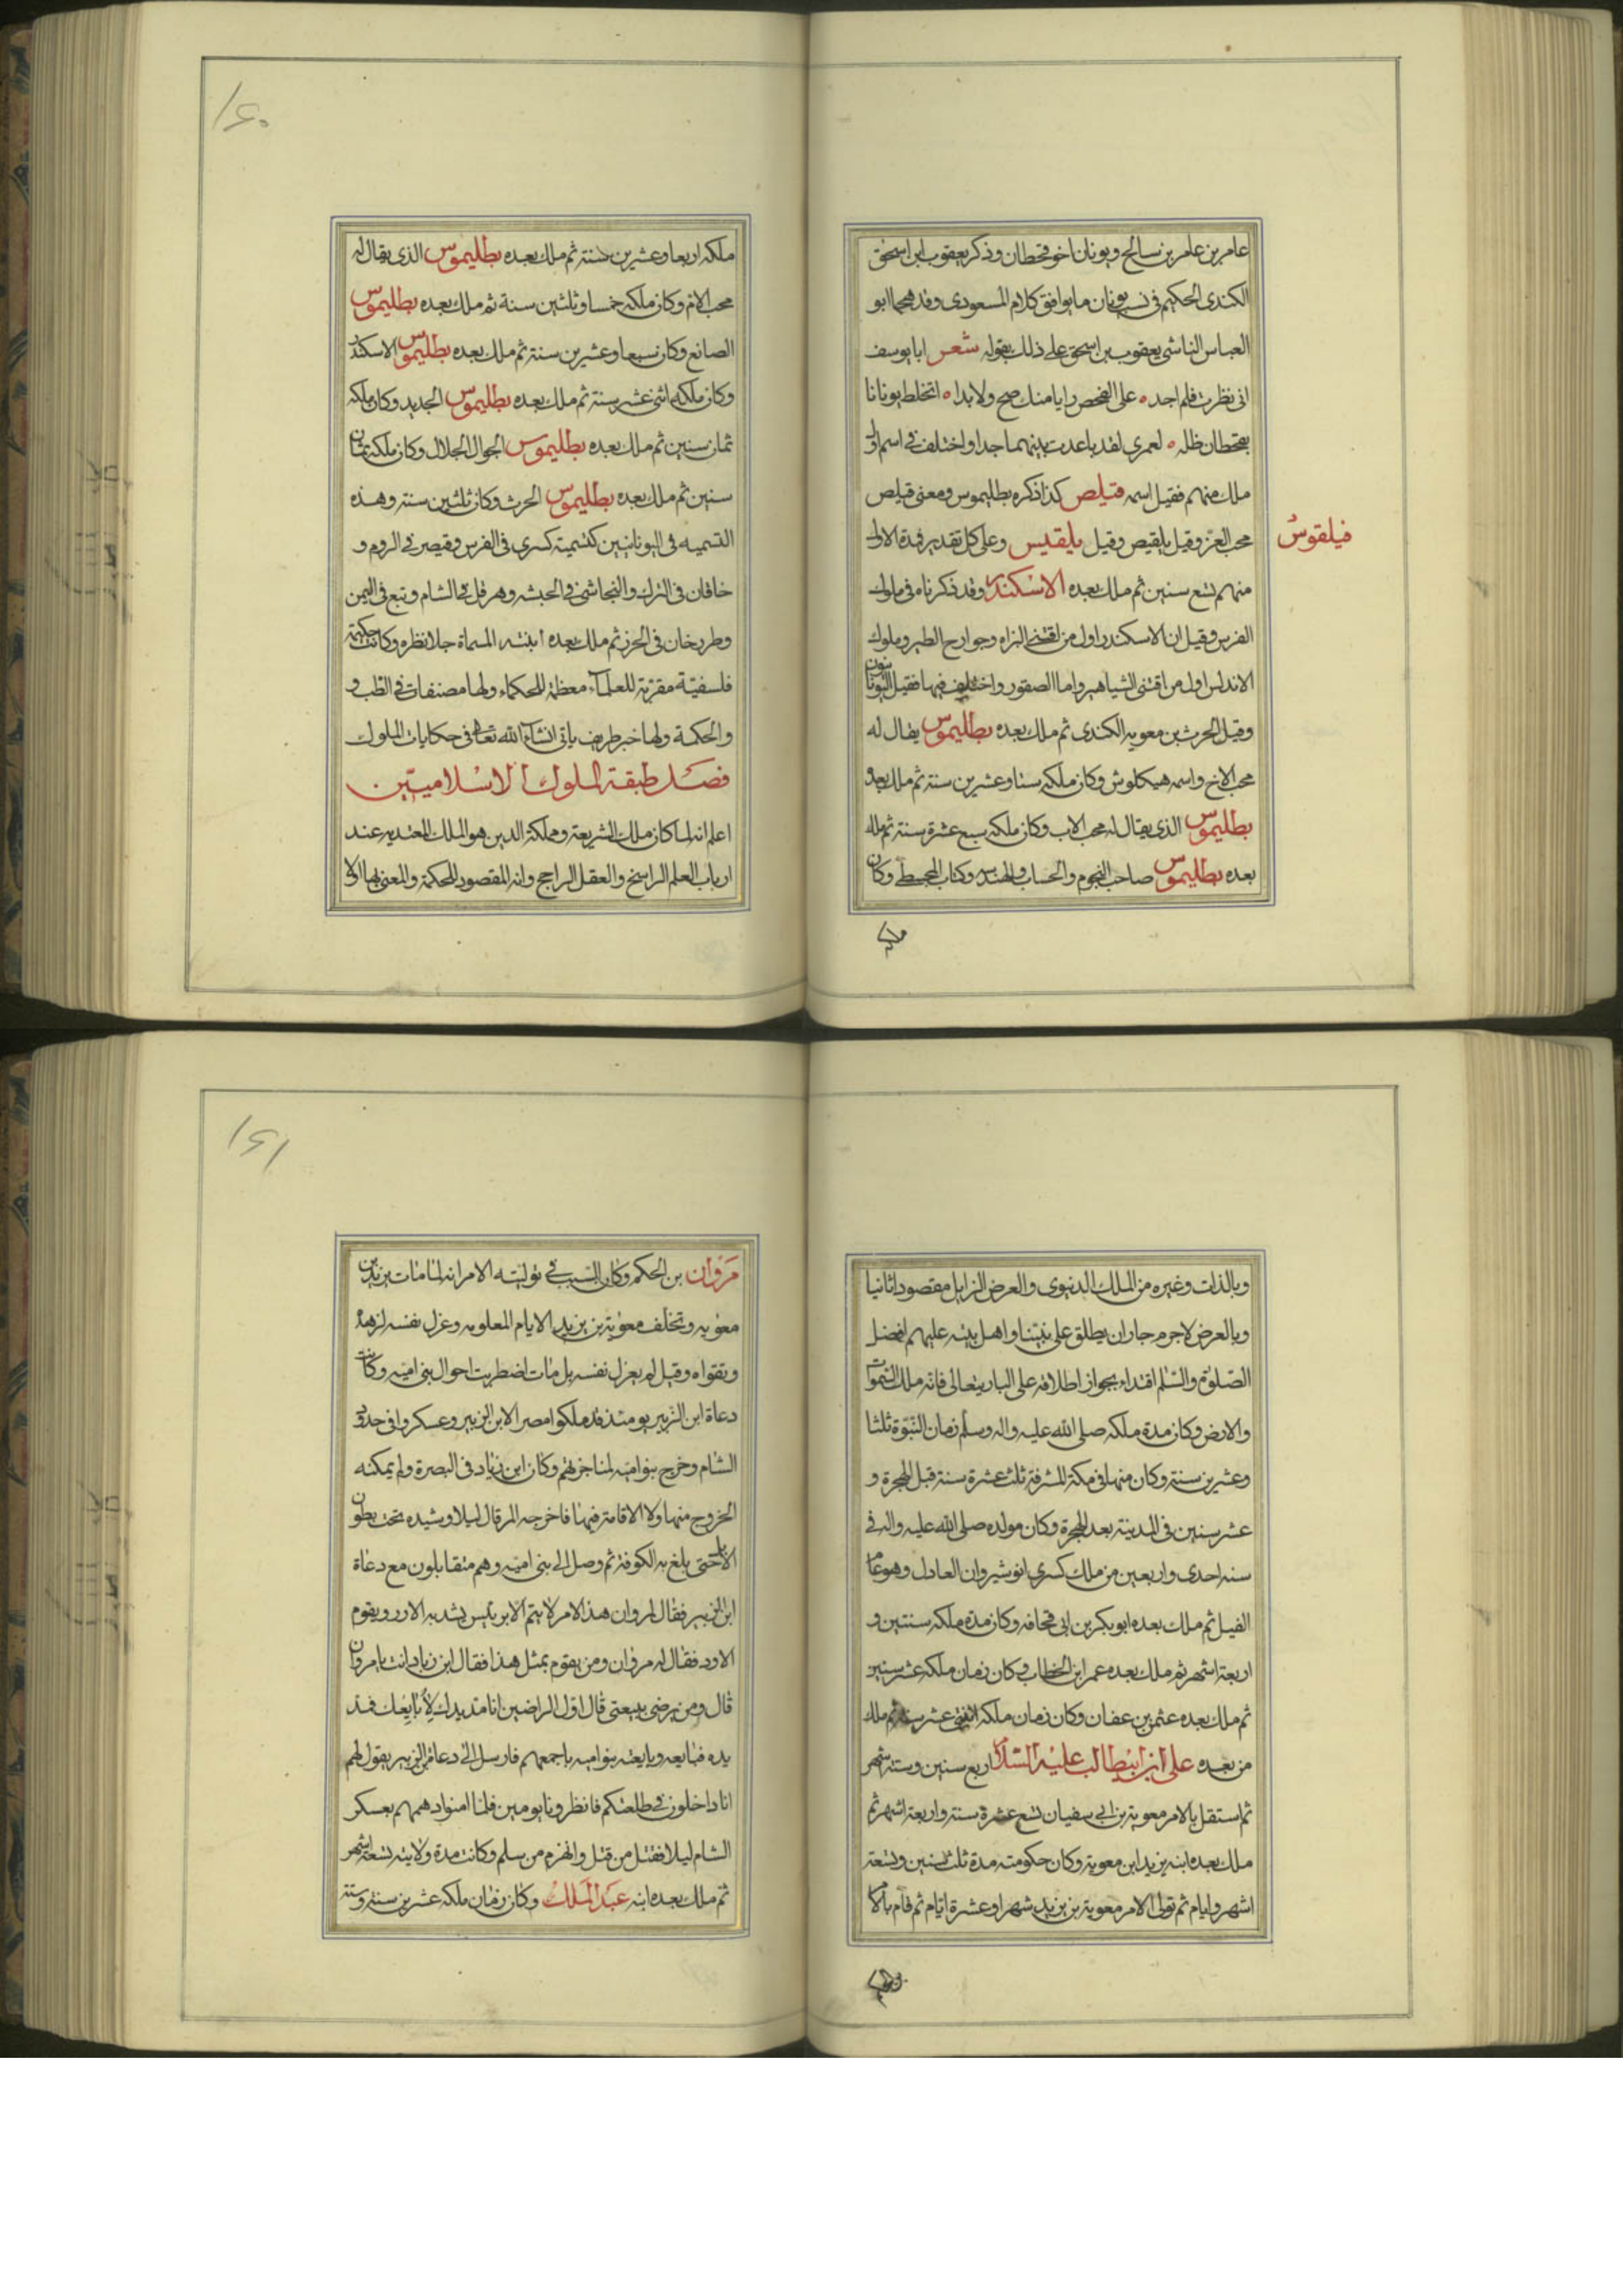 عامر بن عامر بن سالح ويونان اخو قحطان وذكر يعقوب ابن اسحق
الكندى الحكيم فى نسب يونان ما يوافق كلام المسعودى وقد هجاا ابو
العباس الناشى يعقوب بن اسحق على ذلك بقوله شعر ابا يوسف
انى نظرت فلم اجد ه على الفحص رايا منك صح ولا بدا ه اتخلط يونانا
بقحطان ظله ه لعمرى لقد باعدت بينهما جدا واختلف فى اسم اول
ملك منهم فقيل اسمه فيلص كذا ذكره بطليموس ومعنى فيلص
محب العز وقيل يلقيص وقيل يلقيس وعلى كل تقدير فمدة الاول
فيلقوس
منهم تسع سنين ثم ملك بعده الاسكندر وقد ذكرناه فى ملوك
الفرس وقيل ان الاسكندر اول من اقتنى البزاه وجوارح الطير وملوك
الاندلس اول من اقتنى الشياهير واما الصقور واختلف فيها فقيل اليونانيون
وقيل الحرث بن معويه الكندى ثم ملك بعده بطليموس يقال له
محب الاخ واسمه هيكلوش وكان ملكه ستا وعشرين سنة ثم ملك بعده
بطليموس الذى يقال له محب الاب وكان ملكه سبع عشرة سنة ثم ملك
بعده بطليموس صاحب النجوم والحساب والهندس وكتاب المجسطى وكان
ملكه
١٤٠
ملكه اربعا وعشرين سنة ثم ملك بعده بطليموس الذى يقال له
محب الام وكان ملكه خمسا وثلثين سنة ثم ملك بعده بطليموس
الصانع وكان سبعا وعشرين سنة ثم ملك بعده بطليموس الاسكندر
وكان ملكه اثنى عشر سنة ثم ملك بعده بطليموس الجديد وكان ملكه
ثمان سنين ثم ملك بعده بطليموس الجوال الجلال وكان ملكه ثمان
سنين ثم ملك بعده بطليموس الحرث وكان ثلثين سنة وهذه
التسميه فى اليونانيين كتسمية كسرى فى الفرس وقيصر فى الروم و
خاقان فى الترك والنجاشى فى الحبشه وهرقل فى الشام وتبع فى اليمن
وطرخان فى الخزر ثم ملك بعده ابنته المسماة جلانظره وكانت حكيمة
فلسفيّة مقرّبة للعلمآء معظمة للحكماء ولها مصنفات فى الطب و
والحكمة ولها خبر طريف ياتى انشآء الله تعالى فى حكايات الملوك
فصل طبقة الملوك الاسلاميّين
اعلم انه لما كان ملك الشريعة ومملكة الدين هو الملك المعتد به عند
ارباب العلم الراسخ والعقل الراجح وانه المقصود للحكمة والمعنى بها اولا
وبالذات وغيره من الملك الدنيوى والعرض الزايل مقصودا ثانيا
وبالعرض لاجرم جاز ان يطلق على نبيّنا واهل بيته عليهم افضل
الصّلوة والسّلم اقتداء بجواز اطلاقه على البارى تعالى فانه ملك السّموات
والارض وكان مدة ملكه صلى الله عليه واله وسلم زمان النبّوة ثلثا
وعشرين سنة وكان منها فى مكة المشرفة ثلث عشرة سنة قبل الهجرة و
عشر سنين فى المدينة بعد الهجرة وكان مولده صلى الله عليه واله فى
سنه احدى واربعين من ملك كسرى انوشيروان العادل وهو عام
الفيل ثم ملك بعده ابو بكر بن ابى قحافه وكان مدة ملكه سنتين و
اربعة اشهر ثم ملك بعده عمر ابن الخطاب وكان زمان ملكه عشر سنين
ثم ملك بعده عثمن بن عفان وكان زمان ملكه اثنتى عشر سنة ثم ملك
من بعده على ابن ابيطالب عليه السّلام اربع سنين وستة اشهر
ثم استقل بالامر معوية بن ابى سفيان تسع عشرة سنة واربعة اشهر ثم
ملك بعده ابنه يزيد ابن معوية وكان حكومته مدة ثلث سنين وتسعة
اشهر وايام ثم تولى الامر معوية بن يزيد شهرا وعشرة ايّام ثم قام بالامر
١٤١
مَرْوان بن الحكم وكان السّبب فى توليته الامر انه لما مات يزيد بن
معويه وتخلف معوية بن يزيد الايام المعلومه وعزل نفسه لزهده
وتقواه وقيل لم يعزل نفسه بل مات اضطربت احوال بنى اميّه وكانت
دعاة ابن الزّبير يومئذ قد ملكوا مصر الابن الزبير وعسكروا فى حدود
الشام وخرج بنو اميّه لمناجزتهم وكان ابن زياد فى البصرة ولم يمكنه
الخروج منها ولا الاقامة فيها فاخرجه المرقال ليلا وشيده تحت بطون
الابل حتى بلغ به الكوفة ثم وصل الى بنى اميّه وهم متقابلون مع دعاة
ابن الزبير فقال لمروان هذا الامر لا يتم الا برئيس يشد به الازر ويقوم
الاود فقال له مروان ومن يقوم بمثل هذا فقال ابن زياد انت يا مروان
قال ومن يرضى ببيعتى قال اوّل الراضين انا مد يدك لأبايعك فمد
يده فبايعه وبايعته بنو اميه باجمعهم فارسل الى دعاة ابن الزبير يقول لهم
انا داخلون فى طاعتكم فانظرونا يومين فلما امنوا دهمهم بعسكر
الشام ليلا فقتل من قتل وانهزم من سلم وكانت مدة ولايته تسعة اشهر
ثم ملك بعده ابنه عَبد المَلك وكان زمان ملكه عشرين سنة وستة